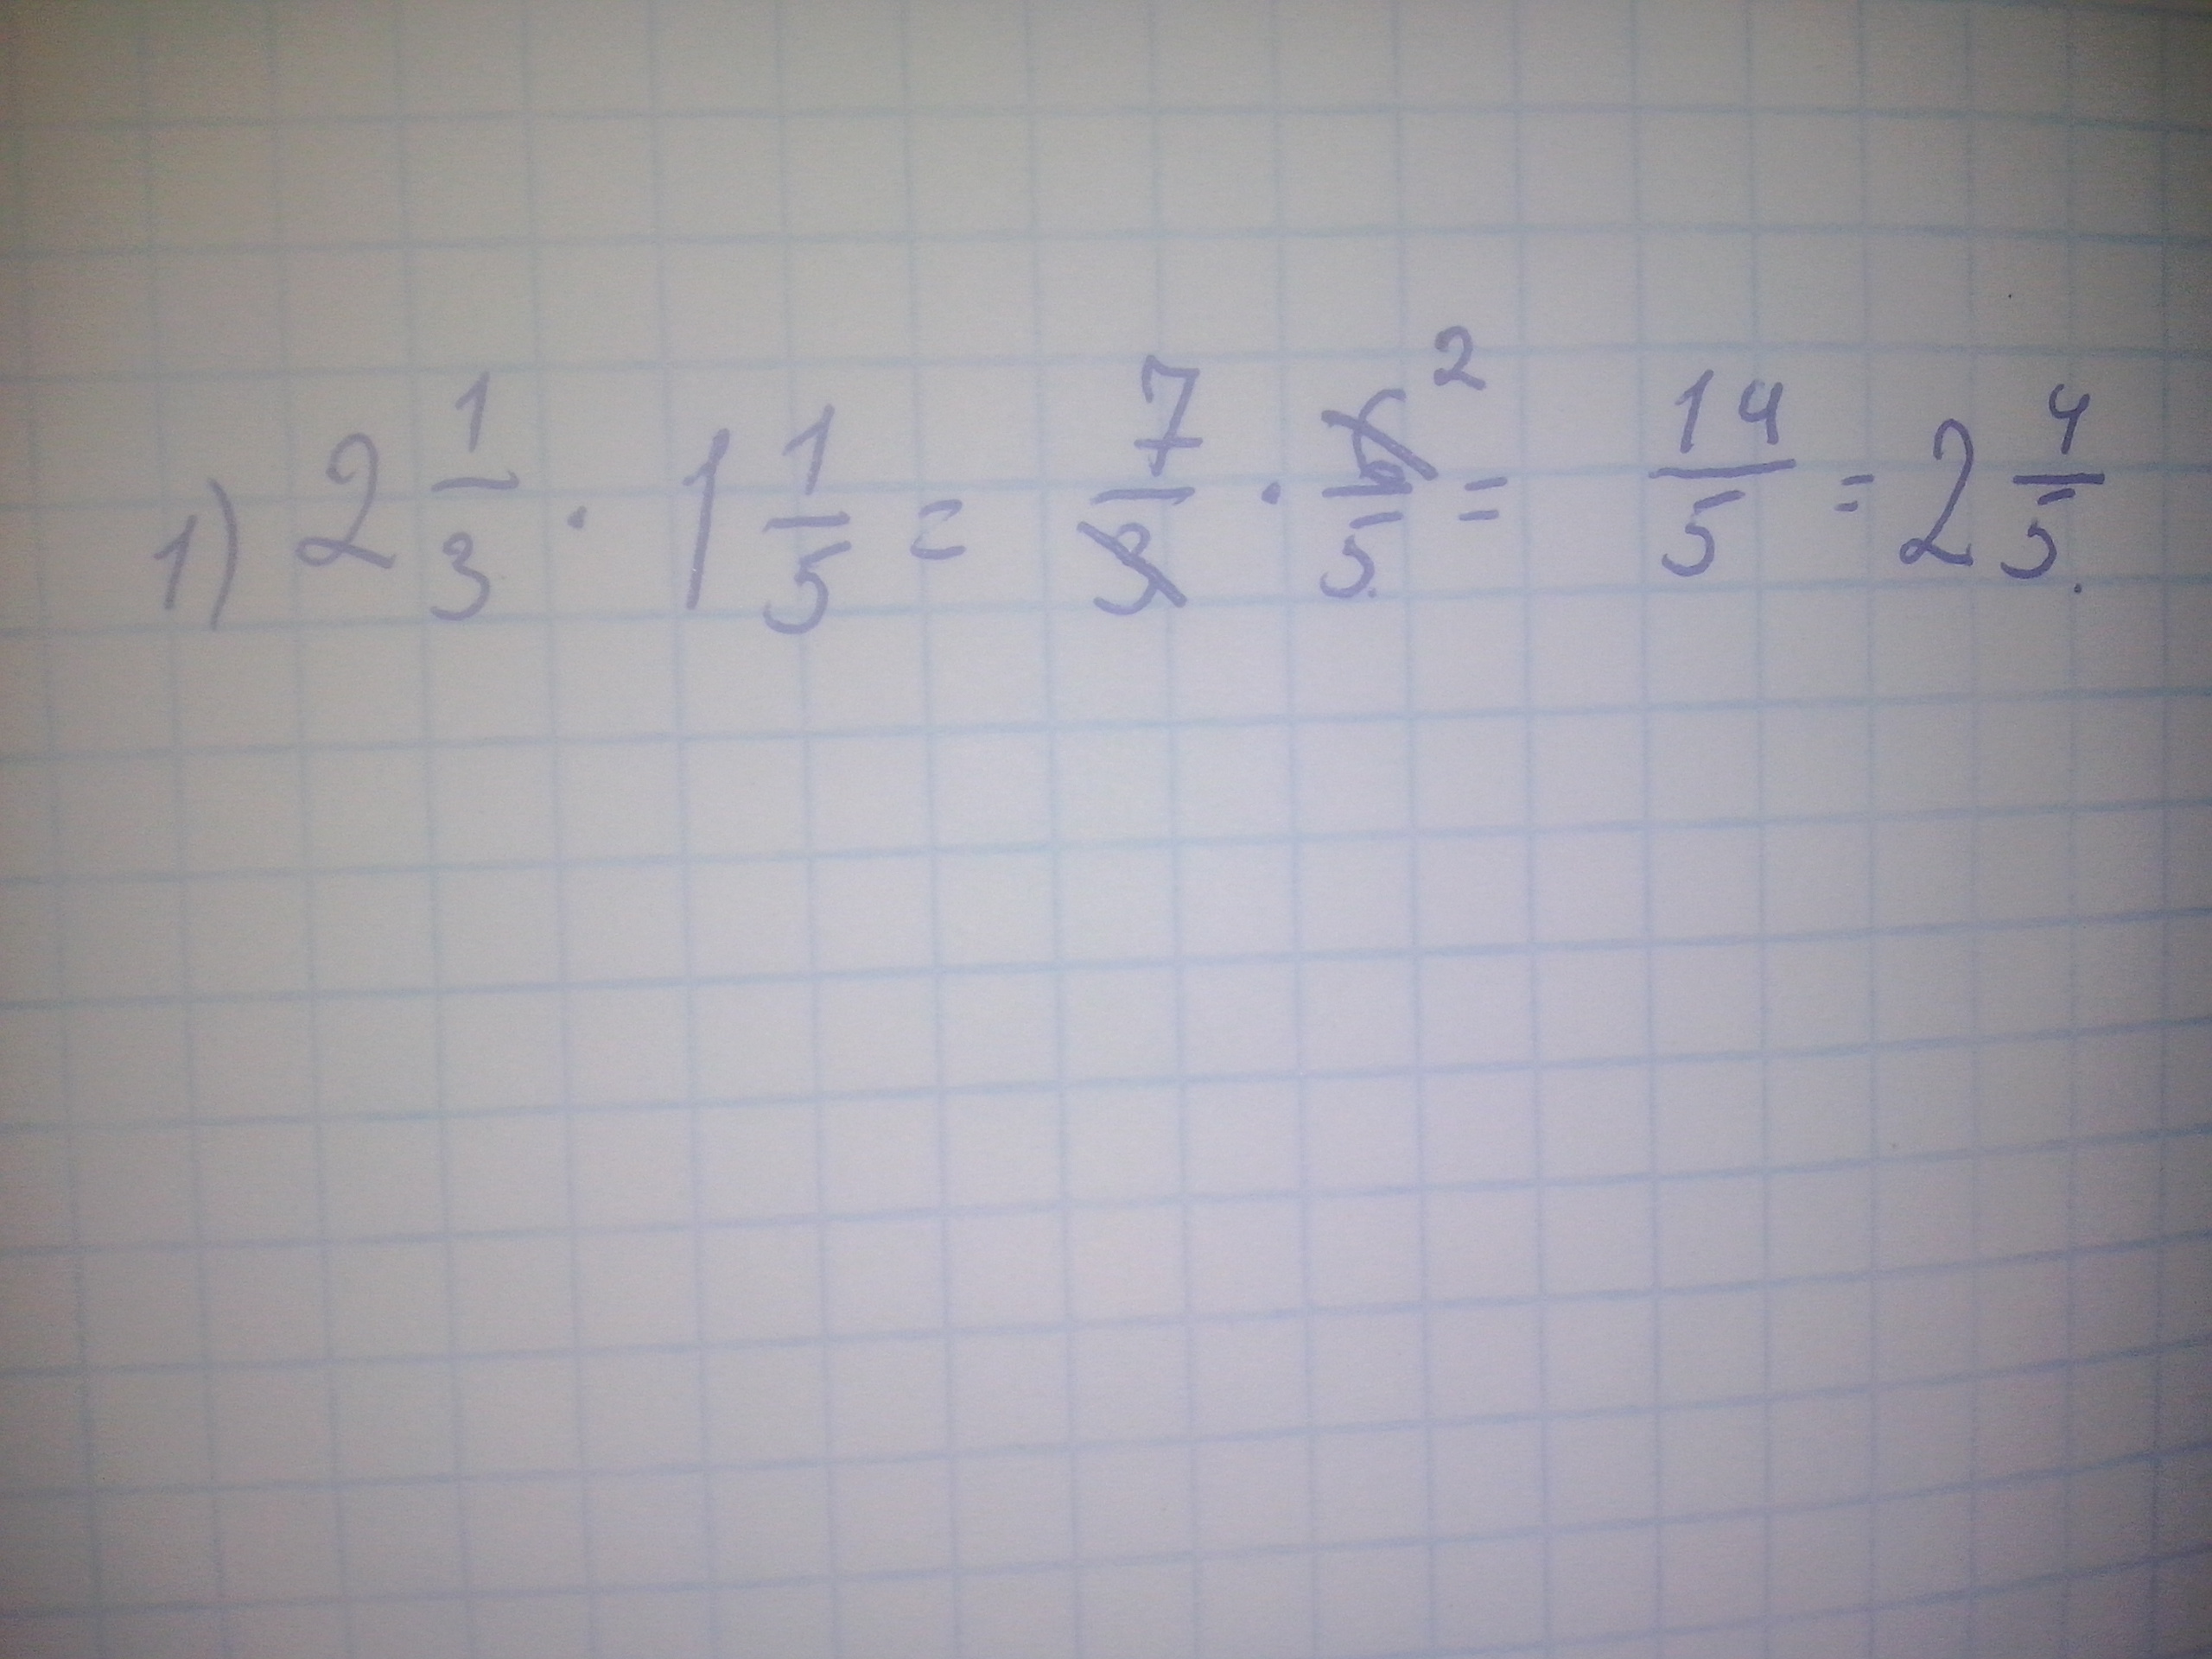 1) 2 1/3 · 1 1/5 = 7/3 · 6/5 2 = 14/5 = 2 4/5.